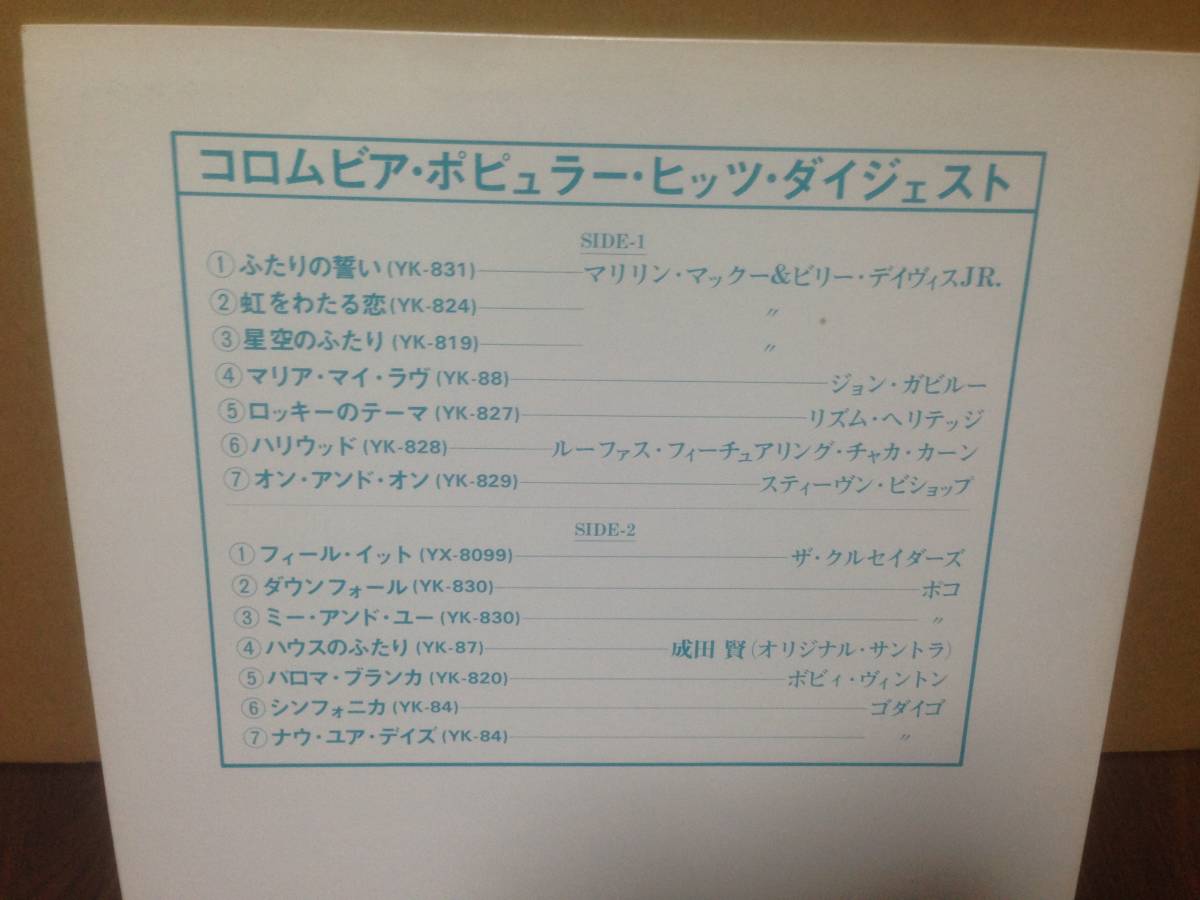 コロムビア・ポピュラー・ヒッツ・ダイジェスト
SIDE-1
①ふたりの誓い(YK-831)マリリン・マックー&ビリー・デイヴィスJR.
②虹をわたる恋(YK-824)〃
③星空のふたり(YK-819)〃
④マリア・マイ・ラヴ(YK-88)ジョン・ガビルー
⑤ロッキーのテーマ(YK-827)リズム・ヘリテッジ
⑥ハリウッド(YK-828)ルーファス・フィーチュアリング・チャカ・カーン
⑦オン・アンド・オン(YK-829)スティーヴン・ビショップ
SIDE-2
①フィール・イット(YX-8099)ザ・クルセイダーズ
②ダウンフォール(YK-830)ポコ
③ミー・アンド・ユー(YK-830)〃
④ハウスのふたり(YK-87)成田 賢(オリジナル・サントラ)
⑤パロマ・ブランカ(YK-820)ボビィ・ヴィントン
⑥シンフォニカ(YK-84)ゴダイゴ
⑦ナウ・ユア・デイズ(YK-84)〃